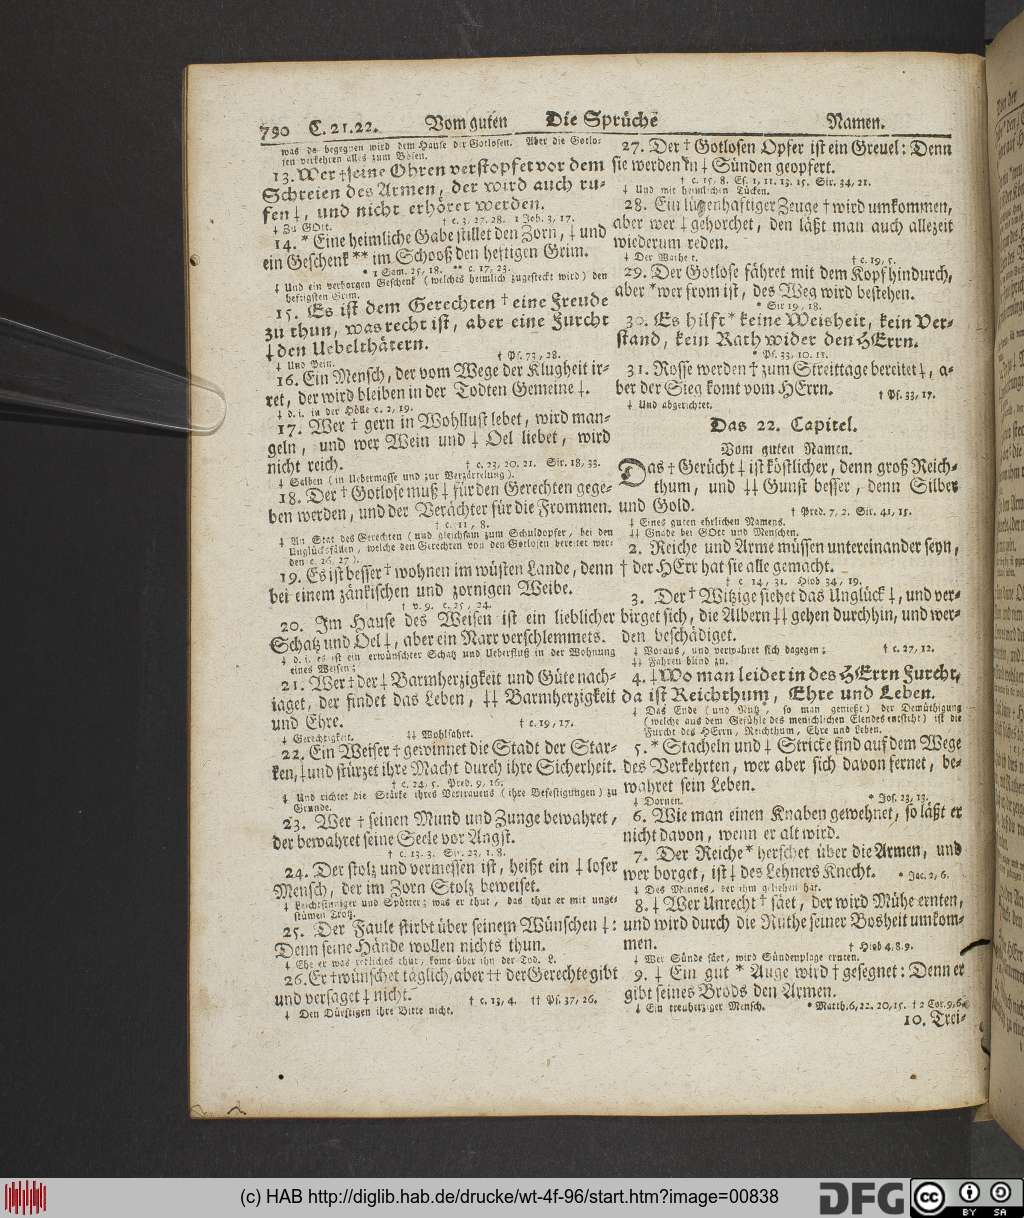 790 C. 21. 22. Vom guten Die Sprüche Namen.
was da begegnen wird dem Hause der Gotlosen. Aber die Gotlo-
sen verkehren alles zum Bösen.
13. Wer †seine Ohren verstopfet vor dem
Schreien des Armen, der wird auch ru-
fen ‡, und nicht erhöret werden.
‡ Zu GOtt. † c. 3, 27. 28. 1 Joh. 3, 17.
14. * Eine heimliche Gabe stillet den Zorn, ‡ und
ein Geschenk ** im Schooß den heftigen Grim.
* 1 Sam. 25, 18. ** c. 17, 23.
‡ Und ein verborgen Geschenk (welches heimlich zugesteckt wird) den
heftigsten Grim.
15. Es ist dem Gerechten † eine Freude
zu thun, was recht ist, aber eine Furcht
‡ den Uebelthätern.
‡ Und Pein. † Ps. 73, 28.
16. Ein Mensch, der vom Wege der Klugheit ir-
ret, der wird bleiben in der Todten Gemeine ‡.
‡ d. i. in der Hölle c. 2, 19.
17. Wer † gern in Wohllust lebet, wird man-
geln, und wer Wein und ‡ Oel liebet, wird
nicht reich. † c. 23, 20. 21. Sir. 18, 33.
‡ Salben (in Uebermasse und zur Verzärtelung).
18. Der † Gotlose muß ‡ für den Gerechten gege-
ben werden, und der Verächter für die Frommen.
† c. 11, 8.
‡ An Stat des Gerechten (und gleichsam zum Schuldopfer, bei den
Unglücksfällen, welche den Gerechten von den Gotlosen bereitet wer-
den c. 26, 27).
19. Es ist besser † wohnen im wüsten Lande, denn
bei einem zänkischen und zornigen Weibe.
† v. 9. c. 25, 24.
20. Im Hause des Weisen ist ein lieblicher
Schatz und Oel ‡, aber ein Narr verschlemmets.
‡ d. i. es ist ein erwünschter Schatz und Ueberfluß in der Wohnung
eines Weisen;
21. Wer † der ‡ Barmherzigkeit und Güte nach-
jaget, der findet das Leben, ‡‡ Barmherzigkeit
und Ehre. † c. 19, 17.
‡ Gerechtigkeit. ‡‡ Wohlfahrt.
22. Ein Weiser † gewinnet die Stadt der Star-
ken, ‡ und stürzet ihre Macht durch ihre Sicherheit.
† c. 24, 5. Pred. 9, 16.
‡ Und richtet die Stärke ihres Vertrauens (ihre Befestigungen) zu
Grunde.
23. Wer † seinen Mund und Zunge bewahret,
der bewahret seine Seele vor Angst.
† c. 13, 3. Sir. 23, 1. 8.
24. Der stolz und vermessen ist, heißt ein ‡ loser
Mensch, der im Zorn Stolz beweiset.
‡ Leichtsinniger und Spötter; was er thut, das thut er mit unge-
stümen Trotz.
25. Der Faule stirbt über seinem Wünschen ‡:
Denn seine Hände wollen nichts thun.
‡ Ehe er was redliches thut, komt über ihn der Tod. L.
26. Er † wünschet täglich, aber †† der Gerechte gibt
und versaget ‡ nicht. † c. 13, 4. †† Ps. 37, 26.
‡ Den Dürftigen ihre Bitte nicht.
27. Der † Gotlosen Opfer ist ein Greuel: Denn
sie werden in ‡ Sünden geopfert.
† c. 15, 8. Es. 1, 11. 13. 15. Sir. 34, 21.
‡ Und mit heimlichen Tücken.
28. Ein lügenhaftiger Zeuge † wird umkommen,
aber wer ‡ gehorchet, den läßt man auch allezeit
wiederum reden.
‡ Der Warheit. † c. 19, 5.
29. Der Gotlose fähret mit dem Kopf hindurch,
aber *wer from ist, des Weg wird bestehen.
* Sir. 19, 18.
30. Es hilft * keine Weisheit, kein Ver-
stand, kein Rath wider den HErrn.
* Ps. 33, 10. 11.
31. Rosse werden † zum Streittage bereitet ‡, a-
ber der Sieg komt vom HErrn. † Ps. 33, 17.
‡ Und abgerichtet.
Das 22. Capitel.
Vom guten Namen.
Das † Gerücht ‡ ist köstlicher, denn groß Reich-
thum, und ‡‡ Gunst besser, denn Silber
und Gold. † Pred. 7, 2. Sir. 41, 15.
‡ Eines guten ehrlichen Namens.
‡‡ Gnade bei GOtt und Menschen.
2. Reiche und Arme müssen untereinander seyn,
† der HErr hat sie alle gemacht.
† c. 14, 31. Hiob 34, 19.
3. Der † Witzige siehet das Unglück ‡, und ver-
birget sich, die Albern ‡‡ gehen durchhin, und wer-
den beschädiget.
‡ Voraus, und verwahret sich dagegen; † c. 27, 12.
‡‡ Fahren blind zu.
4. ‡ Wo man leidet in des HErrn Furcht,
da ist Reichthum, Ehre und Leben.
‡ Das Ende (und Nutz, so man genießt) der Demüthigung
(welche aus dem Gefühle des menschlichen Elendes entsteht) ist die
Furcht des HErrn, Reichthum, Ehre und Leben.
5. * Stacheln und ‡ Stricke sind auf dem Wege
des Verkehrten, wer aber sich davon fernet, be-
wahret sein Leben.
‡ Dornen. * Jos. 23, 13.
6. Wie man einen Knaben gewehnet, so läßt er
nicht davon, wenn er alt wird.
7. Der Reiche * herschet über die Armen, und
wer borget, ist ‡ des Lehners Knecht. * Jac. 2, 6.
‡ Des Mannes, der ihm geliehen hat.
8. ‡ Wer Unrecht † säet, der wird Mühe ernten,
und wird durch die Ruthe seiner Bosheit umkom-
men. † Hiob 4, 8. 9.
‡ Wer Sünde säet, wird Sündenplage ernten.
9. ‡ Ein gut * Auge wird † gesegnet: Denn er
gibt seines Brods den Armen.
‡ Ein treuherziger Mensch. * Matth. 6, 22. 20, 15. † 2 Cor. 9, 6.
10. Trei-
(c) HAB http://diglib.hab.de/drucke/wt-4f-96/start.htm?image=00838
DFG
cc BY SA